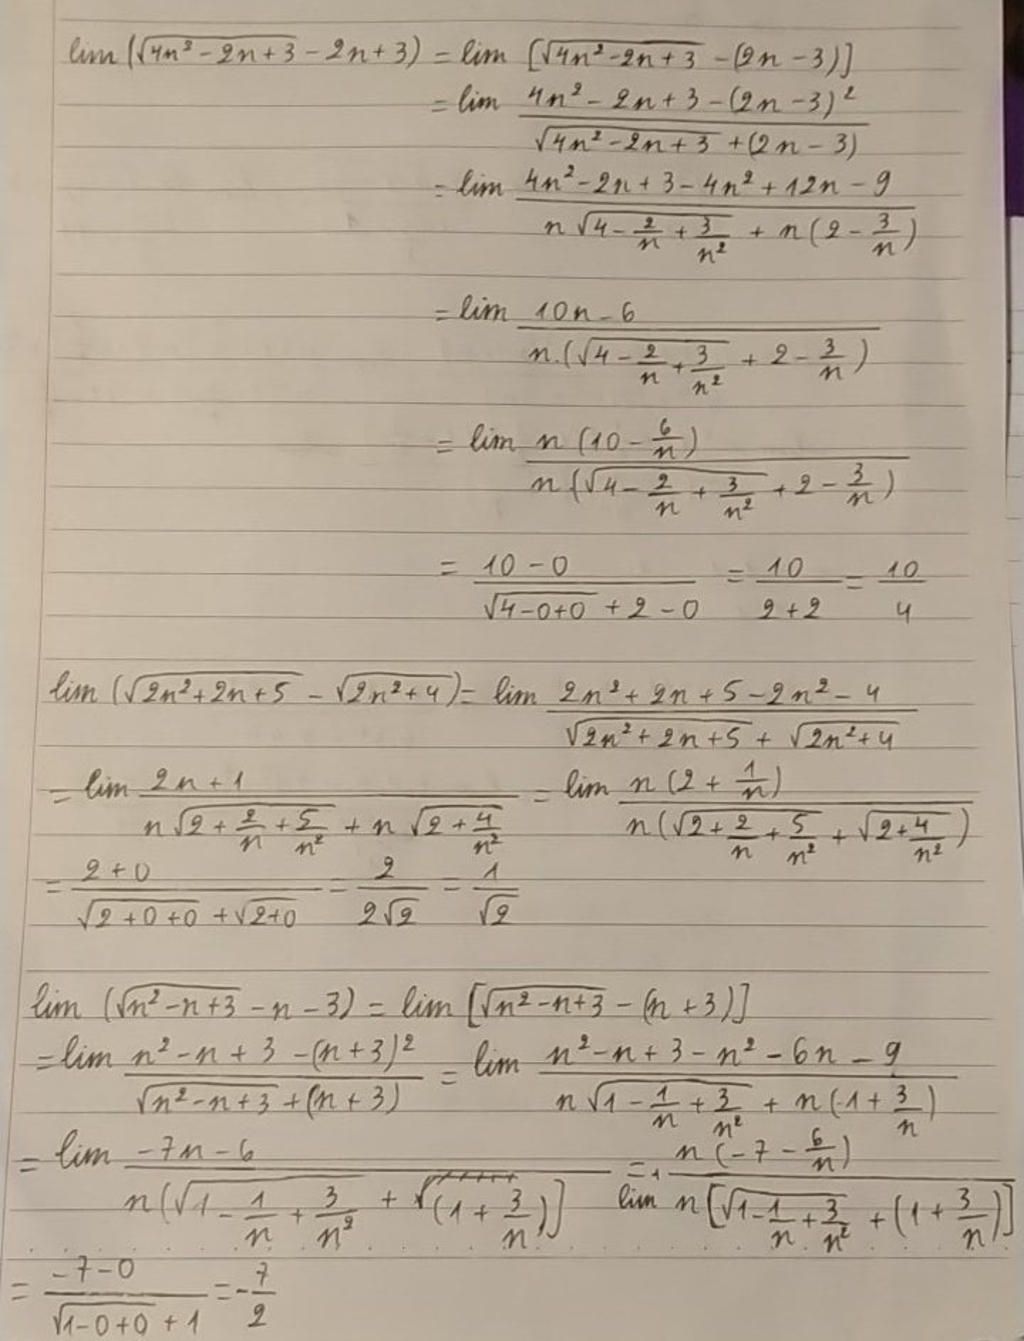 lim (√(4n² - 2n + 3) - 2n + 3) = lim [√(4n² - 2n + 3) - (2n - 3)]
= lim (4n² - 2n + 3 - (2n - 3)²) / (√(4n² - 2n + 3) + (2n - 3))
= lim (4n² - 2n + 3 - 4n² + 12n - 9) / (n √(4 - 2/n + 3/n²) + n(2 - 3/n))
= lim (10n - 6) / (n.(√(4 - 2/n + 3/n²) + 2 - 3/n))
= lim n(10 - 6/n) / (n(√(4 - 2/n + 3/n²) + 2 - 3/n))
= (10 - 0) / (√(4 - 0 + 0) + 2 - 0) = 10 / (2 + 2) = 10/4
lim (√(2n² + 2n + 5) - √(2n² + 4)) = lim (2n² + 2n + 5 - 2n² - 4) / (√(2n² + 2n + 5) + √(2n² + 4))
= lim (2n + 1) / (n √(2 + 2/n + 5/n²) + n √(2 + 4/n²)) = lim n(2 + 1/n) / (n(√(2 + 2/n + 5/n²) + √(2 + 4/n²)))
= (2 + 0) / (√(2 + 0 + 0) + √(2 + 0)) = 2 / (2√2) = 1/√2
lim (√(n² - n + 3) - n - 3) = lim [√(n² - n + 3) - (n + 3)]
= lim (n² - n + 3 - (n + 3)²) / (√(n² - n + 3) + (n + 3)) = lim (n² - n + 3 - n² - 6n - 9) / (n √(1 - 1/n + 3/n²) + n(1 + 3/n))
= lim (-7n - 6) / (n(√(1 - 1/n + 3/n²) + (1 + 3/n)]) = lim n(-7 - 6/n) / (n[√(1 - 1/n + 3/n²) + (1 + 3/n)])
= (-7 - 0) / (√(1 - 0 + 0) + 1) = -7/2